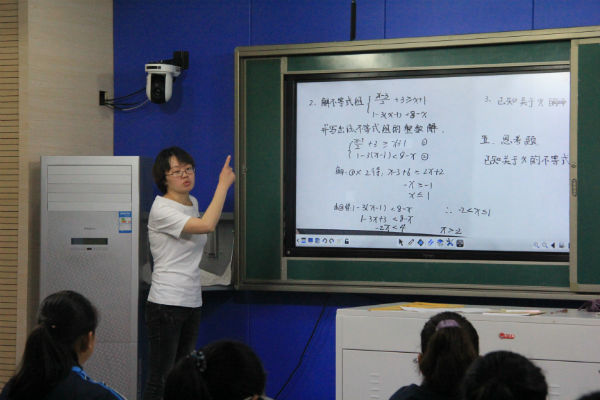 2. 解不等式组 { x-3/2 +3≥x+1
1-3(x-1)<8-x
并写出该不等式组的整数解.
{ x-3/2 +3≥x+1 ①
1-3(x-1)<8-x ②
解: ①×2得, x-3+6≥2x+2
-x≥-1
x≤1
1-3(x-1)<8-x
1-3x+3<8-x
-2x<4
x>-2
∴ -2<x≤1
3. 已知关于x的
五、思考题
已知关于x的不等式